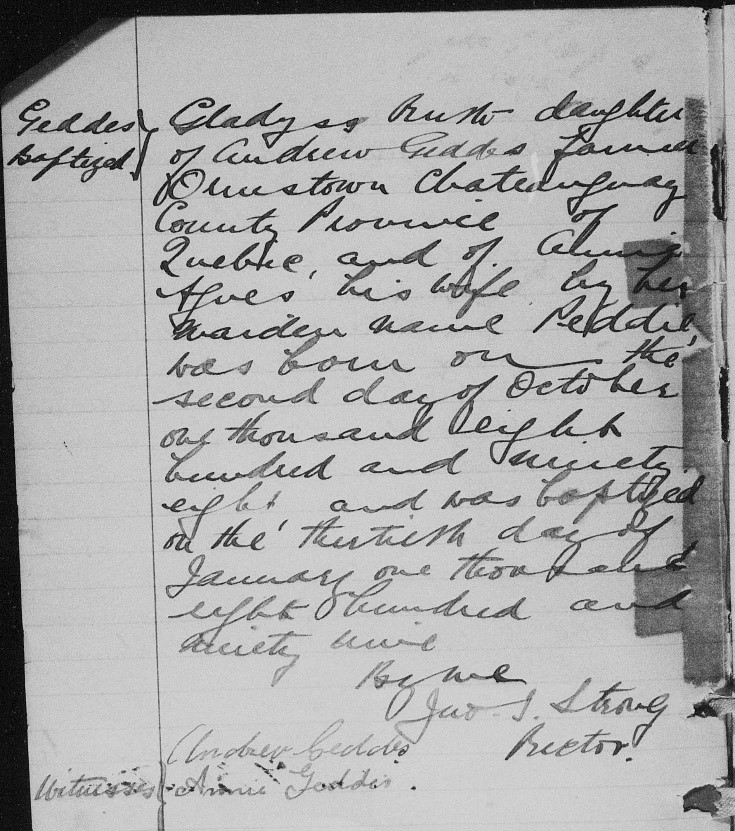 Geddes
Baptized
Gladyss Ruth daughter
of Andrew Geddes farmer
Ormstown Chateauguay
County Province of
Quebec, and of Annie
Agnes his wife by her
maiden name Peddie,
was born on the
second day of October
one thousand eight
hundred and ninety
eight and was baptized
on the thirtieth day of
January one thousand
eight hundred and
ninety nine
By me
Jno. I. Strong
Rector.
Andrew Geddes
Witnesses Annie Geddes.